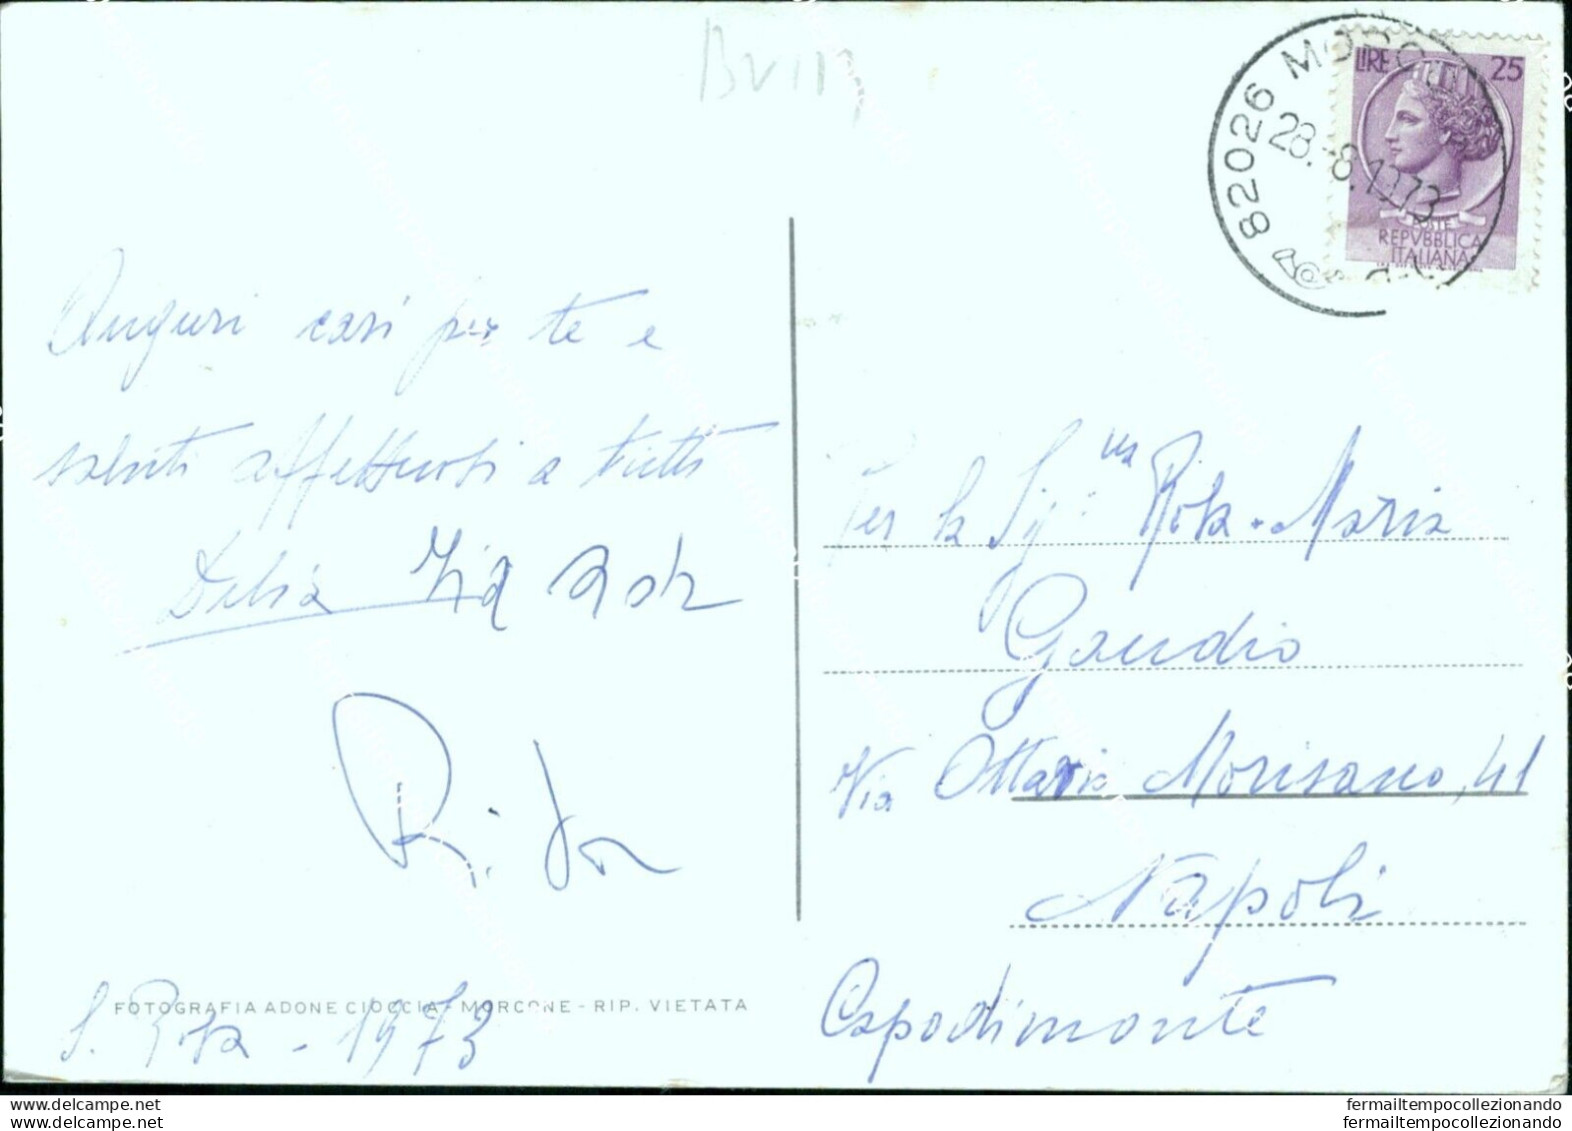 82026 MORCONE
28.-8.1973
LIRE 25
POSTE
REPVBBLICA
ITALIANA
Auguri cari per te e
saluti affettuosi a tutti
Delia Zia
Rita
S. Rosa - 1973
FOTOGRAFIA ADONE CIOCCIA - MORCONE - RIP. VIETATA
Per la Sig.na Rosa Maria
Gaudio
Via Ottavio Morisano, 41
Napoli
Capodimonte
www.delcampe.net
www.delcampe.net
fermailtempocollezionando
fermailtempocollezionando